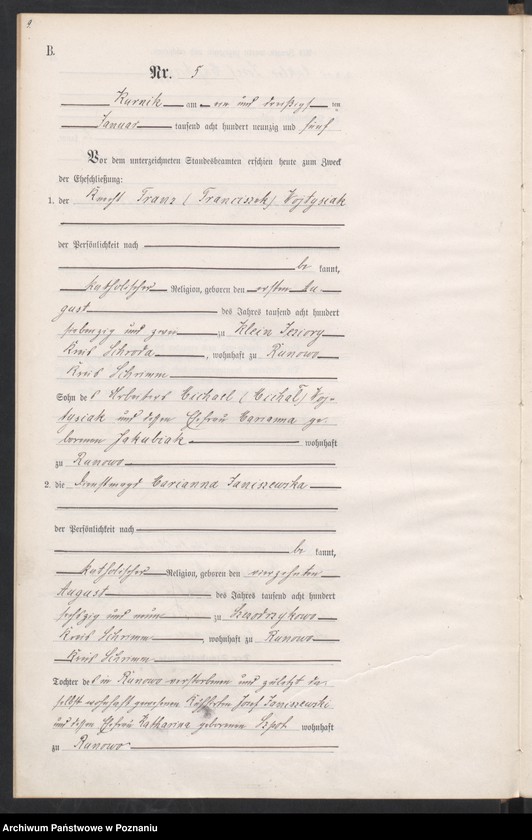 B.
Nr. 5
Kurnik am ein und dreißigsten
Januar tausend acht hundert neunzig und fünf
Vor dem unterzeichneten Standesbeamten erschien heute zum Zweck
der Eheschließung:
1. der Knecht Franz (Franciszek) Wojtysiak
der Persönlichkeit nach
be kannt,
katholischer Religion, geboren den ersten Au-
gust des Jahres tausend acht hundert
siebenzig und zwei zu Klein Jeziory
Kreis Schroda, wohnhaft zu Runowo
Kreis Schrimm
Sohn des Arbeiters Michael (Michał) Woj-
tysiak und dessen Ehefrau Marianna ge-
borenen Jakubiak wohnhaft
zu Runowo
2. die Dienstmagd Marianna Janiszewska
der Persönlichkeit nach
be kannt,
katholischer Religion, geboren den vierzehnten
August des Jahres tausend acht hundert
sechszig und neun zu
Kreis Schrimm, wohnhaft zu Runowo
Kreis Schrimm
Tochter des in Runowo verstorbenen und zuletzt da-
selbst wohnhaft gewesenen Josef Janiszewski
und dessen Ehefrau Katharina geborenen Szpot wohnhaft
zu Runowo
Archiwum Państwowe w Poznaniu